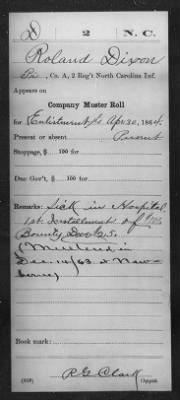 D 2 N.C.
Roland Dixon
Co. A, 2 Reg't North Carolina Inf.
Appears on
Company Muster Roll
for Enlistment to Apr 30, 1864.
Present or absent Present
Stoppage, $ 100 for
Due Gov't, $ 100 for
Remarks: Sick in Hospital
1st Installment of
Bounty Due $25.
(Mustered in
Dec. 14/63 at New-
berne)
Book mark:
R G Clark
Copyist.